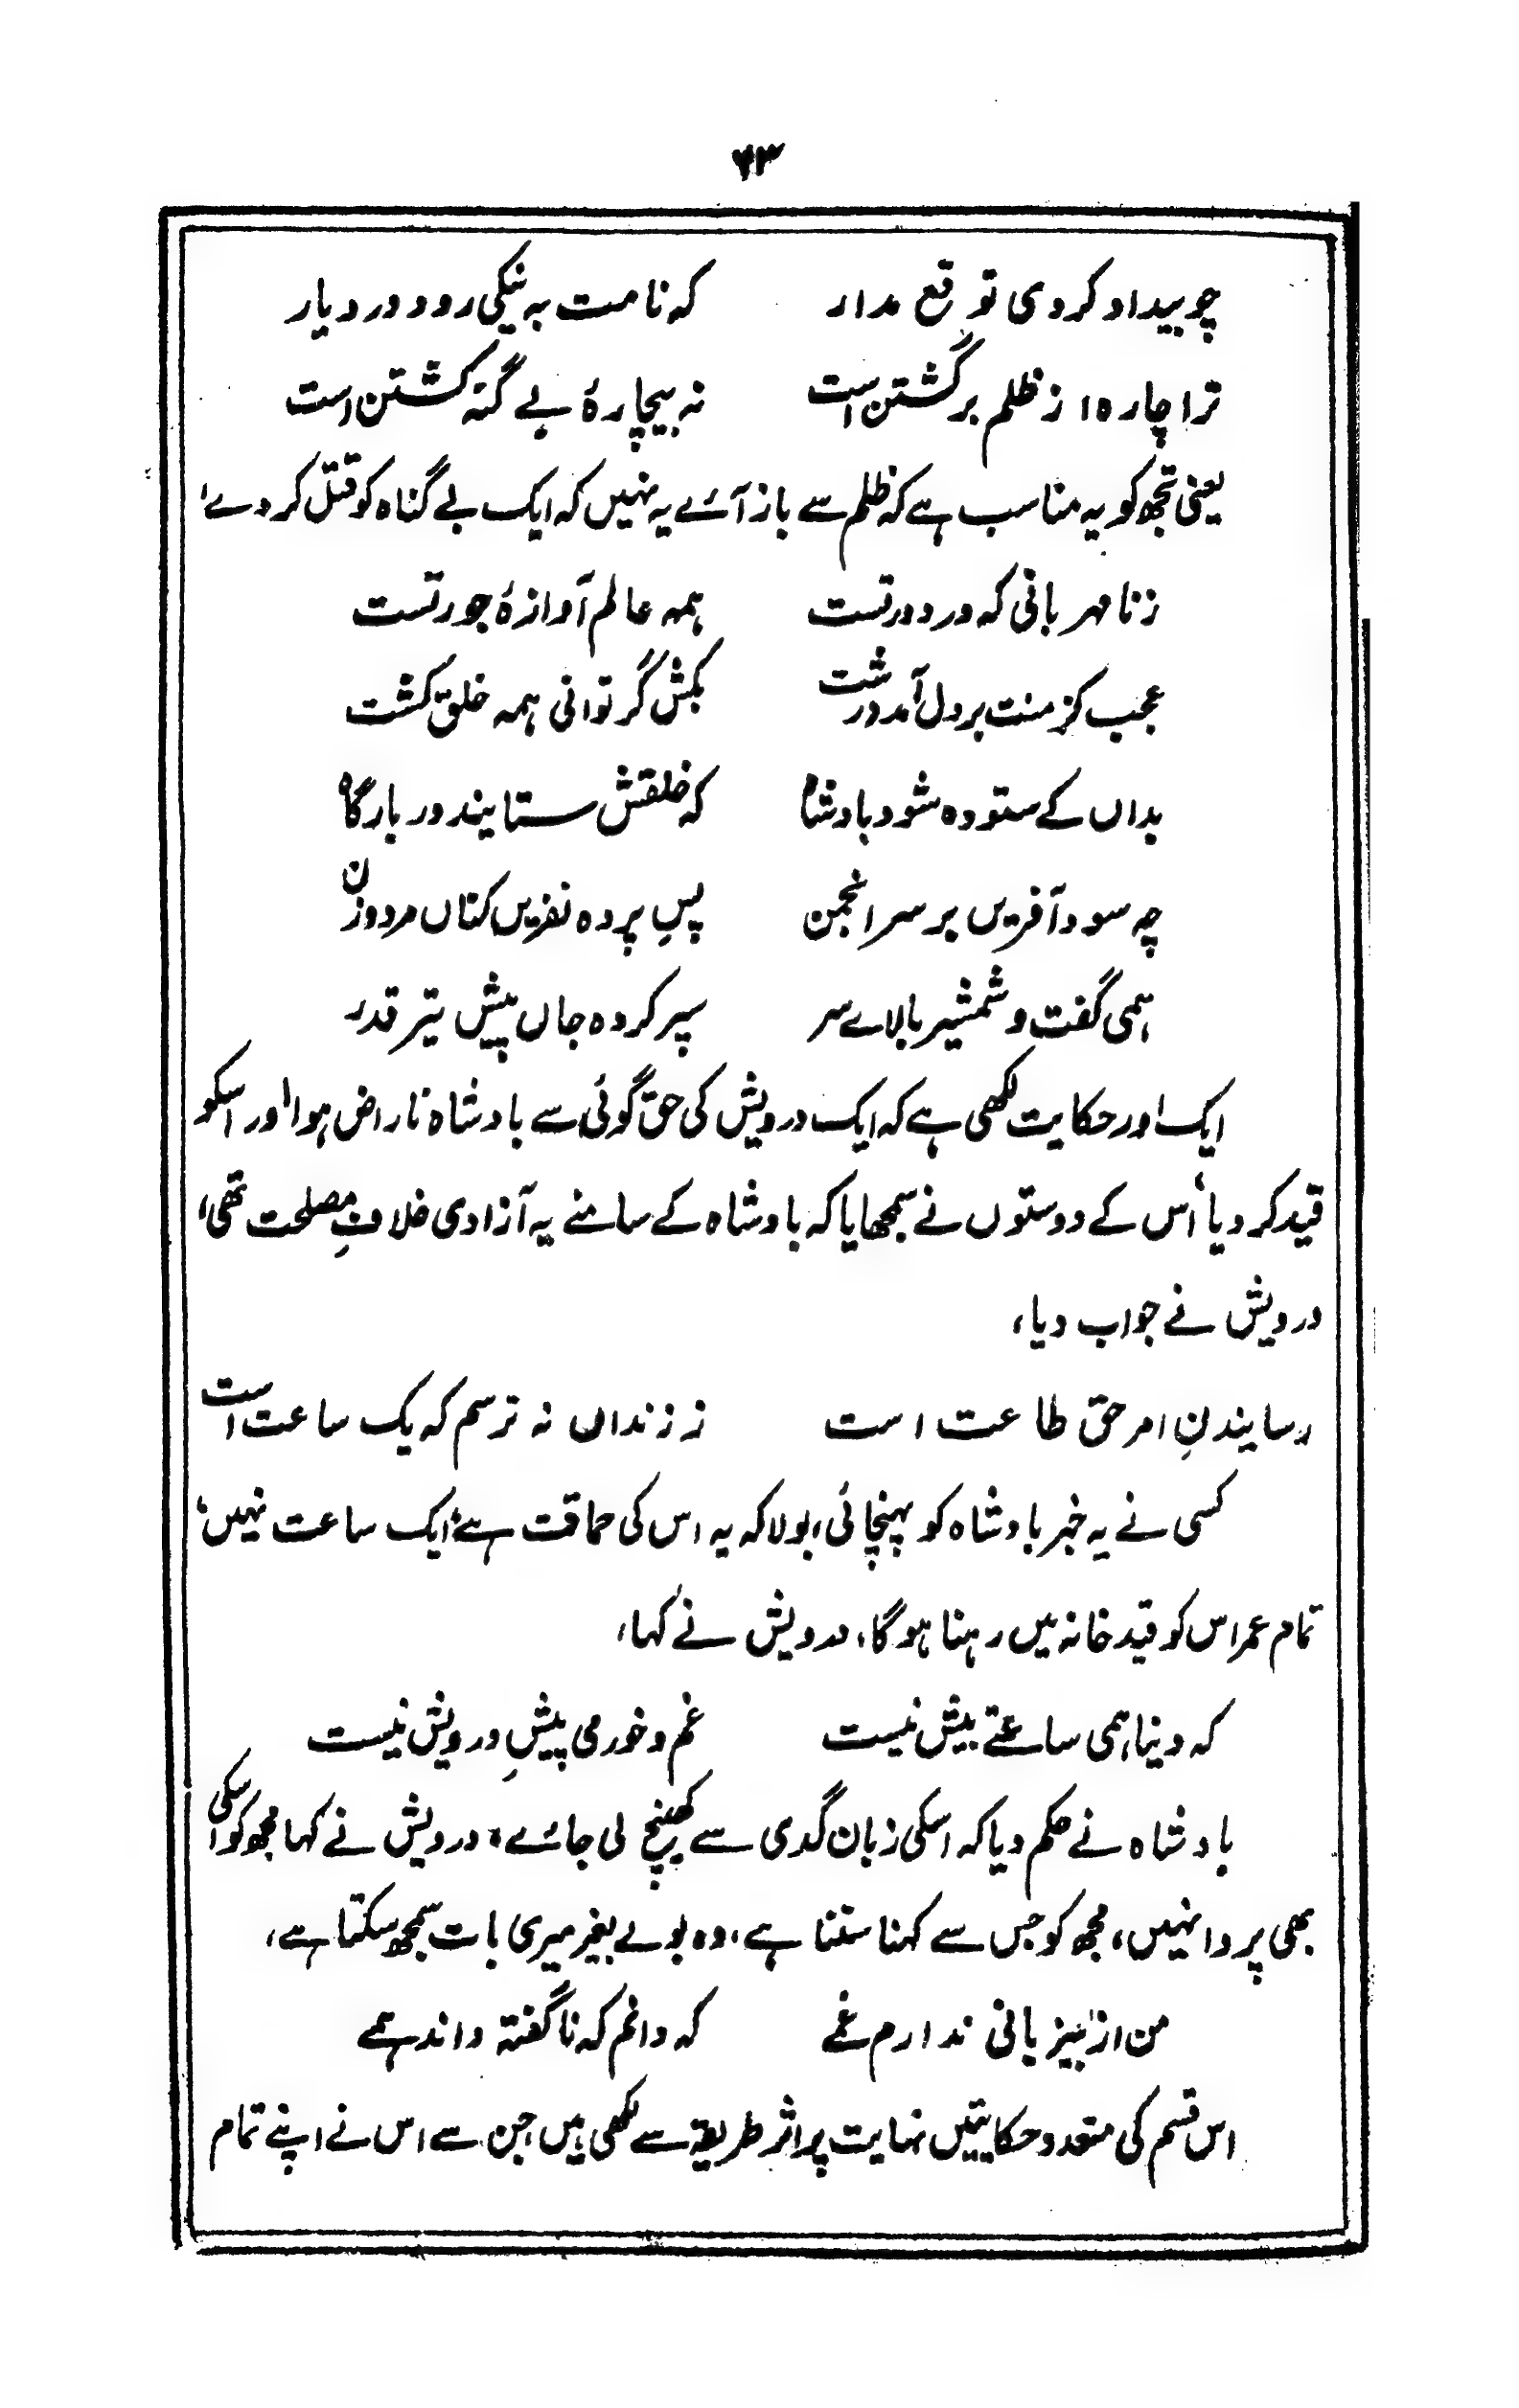 ۷۳
چو بیداد کردی توقع مدار کہ نامت بہ نیکی رود در دیار
ترا چارہ از ظلم برگشتن است نہ بیچارۂ بے گنہ کشتن است
یعنی تجھ کو یہ مناسب ہے کہ ظلم سے باز آئے یہ نہیں کہ ایک بے گناہ کو قتل کر دے،
زنا مہربانی کہ در دور تست ہمہ عالم آوازۂ جور تست
عجب کز منت بر دل آمد درشت بکش گر توانی ہمہ خلق کشت
بداں کے ستودہ شود بادشاہ کہ خلقش ستایند در بارگاہ
چہ سود آفریں بر سر انجمن پسِ پردہ نفریں کناں مرد و زن
ہمی گفت و شمشیر بالاے سر سپر کردہ جاں پیش تیر قدر
ایک اور حکایت لکھی ہے کہ ایک درویش کی حق گوئی سے بادشاہ ناراض ہوا، اور اسکو
قید کر دیا، اُس کے دوستوں نے سمجھایا کہ بادشاہ کے سامنے یہ آزادی خلافِ مصلحت تھی،
درویش نے جواب دیا،
رسایندنِ امر حق طاعت است ز زنداں نہ ترسم کہ یک ساعت است
کسی نے یہ خبر بادشاہ کو پہنچائی، بولا کہ یہ اس کی حماقت ہے، ایک ساعت نہیں،
تمام عمر اس کو قید خانہ میں رہنا ہوگا، درویش نے کہا،
کہ دنیا ہمی ساعتے بیش نیست غم و خورمی پیشِ درویش نیست
بادشاہ نے حکم دیا کہ اسکی زبان گدی سے کھینچ لی جائے، درویش نے کہا مجھ کو اسکی
بھی پروا نہیں، مجھ کو جس سے کہنا سننا ہے، وہ بولے بغیر میری بات سمجھ سکتا ہے،
من از بیزبانی ندارم غمے کہ دانم کہ ناگفتہ داند ہمے
اس قسم کی متعدد حکایتیں نہایت پر اثر طریقہ سے لکھی ہیں جن سے اس نے اپنے تمام